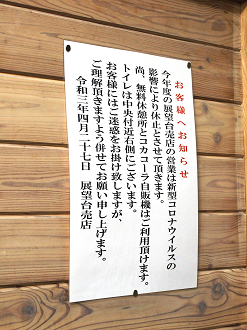 お客様へお知らせ
今年度の展望台売店の営業は新型コロナウイルスの
影響により休止とさせて頂きます。
尚、無料休憩所とコカコーラ自販機はご利用頂けます。
トイレは中央付近右側にございます。
お客様にはご迷惑をお掛け致しますが、
ご理解頂きますよう併せてお願い申し上げます。
令和三年四月二十七日　展望台売店